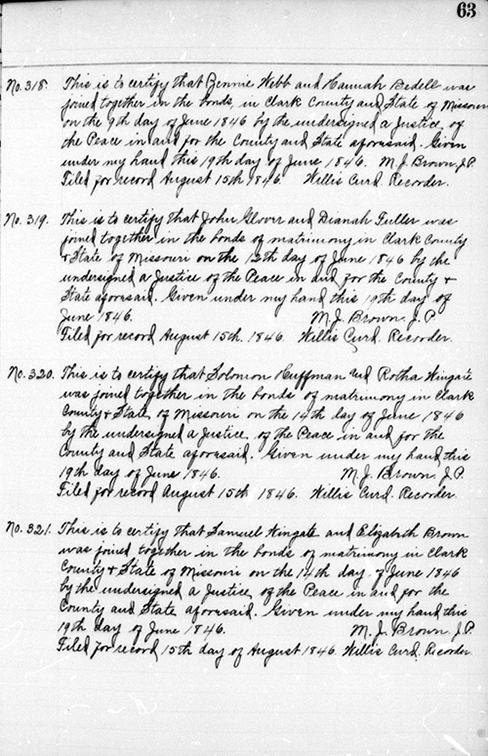 63
No. 318. This is to certify that Bennie Webb and Hannah Bedell was
joined together in the bonds, in Clark County and State of Missouri
on the 9th day of June 1846 by the undersigned a Justice, of
the Peace in and for the County and State aforesaid. Given
under my hand this 19th day of June 1846. M. J. Brown, J.P.
Filed for record August 15th 1846. Willis Curd. Recorder.
No. 319. This is to certify that John Glover and Dianah Fuller was
joined together in the bonds of matrimony in Clark County
& State of Missouri on the 12th day of June 1846 by the
undersigned a Justice of the Peace in and for the County &
State aforesaid. Given under my hand this 19th day of
June 1846. M. J. Brown. J. P.
Filed for record August 15th. 1846. Willis Curd. Recorder.
No. 320. This is to certify that Solomon Huffman and Rotha Wingate
was joined together in the bonds of matrimony in Clark
County & State, of Missouri on the 14th day of June 1846
by the undersigned a Justice, of the Peace in and for the
County and State aforesaid. Given under my hand this
19th day of June 1846. M. J. Brown. J.P.
Filed for record August 15th 1846. Willis Curd. Recorder.
No. 321. This is to certify that Samuel Wingate and Elizabeth Brown
was joined together in the bonds of matrimony in Clark
County & State of Missouri on the 14th day of June 1846
by the undersigned a Justice, of the Peace in and for the
County and State aforesaid. Given under my hand this
19th day of June 1846. M. J. Brown, J.P.
Filed for record 15th day of August 1846. Willis Curd. Recorder.